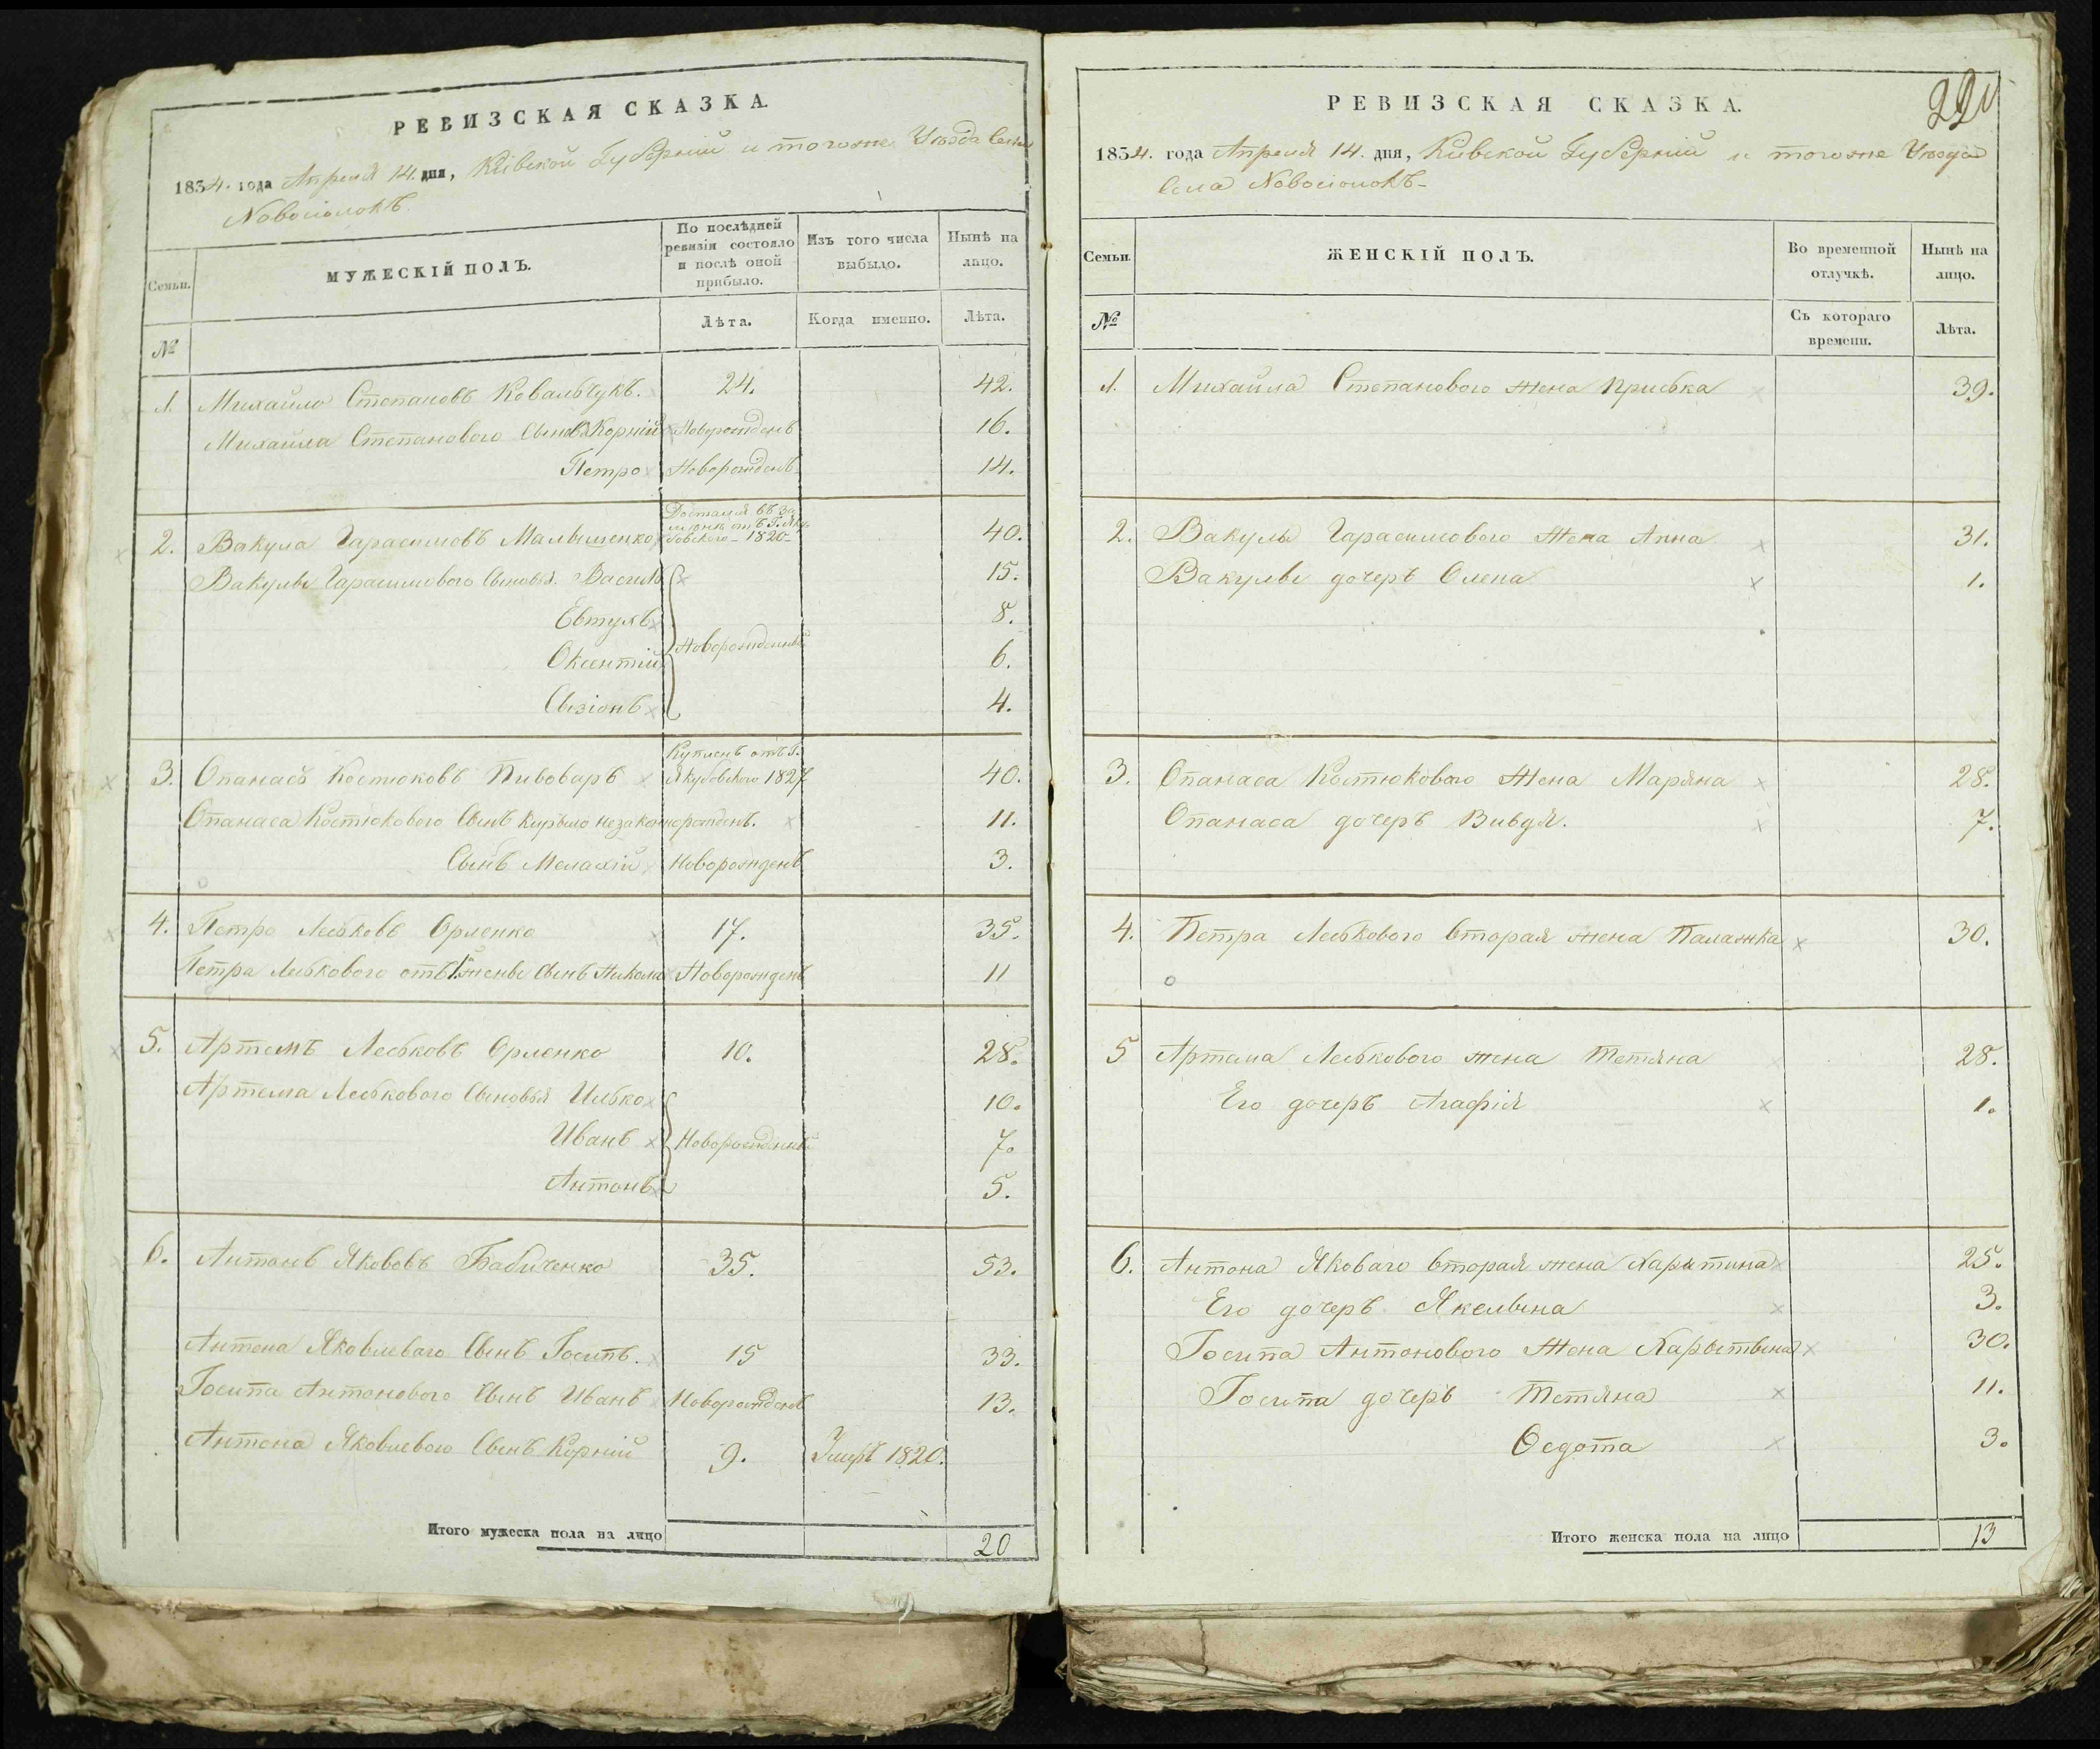 РЕВИЗСКАЯ СКАЗКА.
1834. года Апреля 14. дня, Кіевской Губерніи и тогоже Уѣзда Села
Новосіолокъ.
Семьи.
МУЖЕСКІЙ ПОЛЪ.
По послѣдней ревизіи состояло и послѣ оной прибыло.
Изъ того числа выбыло.
Нынѣ на лицо.
№
Лѣта.
Когда именно.
Лѣта.
1. Михайло Степановъ Ковальчукъ. 24. 42.
Михайла Степанового Сыновья Корній Новорожденъ 16.
Петро Новорожденъ 14.
2. Вакула Гарасимовъ Малышенко Достался въ За
отъ Г. Яку
бовского 1820 40.
Вакулы Гарасимового Сыновья. Василь 15.
Евтухъ 8.
Оксентій Новорожденные 6.
Сизіонъ 4.
3. Опанасъ Костюковъ Пивоваръ Купленъ отъ Г.
Якубовского 1827 40.
Опанаса Костюкового Сынъ Кирыло незаконорожденъ. 11.
Сынъ Мелахій Новорожденъ 3.
4. Петро Леськовъ Орленко 17. 35.
Петра Леськового отъ 1й жены Сынъ Никола Новорожденъ 11
5. Артемъ Леськовъ Орленко 10. 28.
Артема Леськового Сыновья Илько 10.
Иванъ Новорожденные 7.
Антонъ 5.
6. Антонъ Якововъ Бабиченко 35. 53.
Антона Яковлеваго Сынъ Іосипъ. 15 33.
Іосипа Антонового Сынъ Иванъ Новорожденъ 13.
Антона Яковлевого Сынъ Корній 9. Умеръ 1820.
Итого мужеска пола на лицо 20
220
РЕВИЗСКАЯ СКАЗКА.
1834. года Апреля 14. дня, Кіевской Губерніи и тогоже Уѣзда
Села Новосіолокъ
Семьи.
ЖЕНСКІЙ ПОЛЪ.
Во временной отлучкѣ.
Нынѣ на лицо.
№
Съ котораго времени.
Лѣта.
1. Михайла Степанового жена Приська 39.
2. Вакулы Гарасимового Жена Анна 31.
Вакулы дочеръ Олена 1.
3. Опанаса Костюкового Жена Маряна 28.
Опанаса дочеръ Вивдя. 7.
4. Петра Леськового вторая жена Палажка 30.
5 Артема Леськового жена Тетяна 28.
Его дочеръ Агафія 1.
6. Антона Яковаго вторая жена Харитина 25.
Его дочеръ Якелына 3.
Іосипа Антонового Жена Харытына 30.
Іосипа дочеръ Тетяна 11.
Федота 3.
Итого женска пола на лицо 13